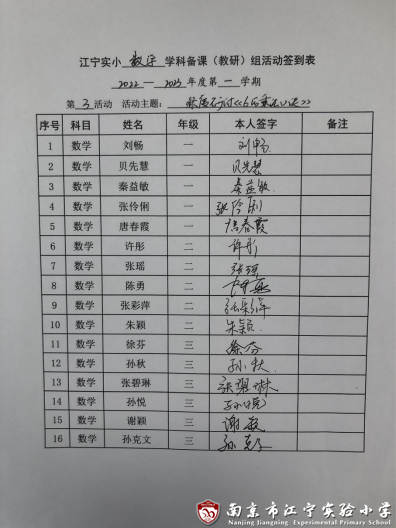 江宁实小 数学 学科备课（教研）组活动签到表
2022—2023 年度第 一 学期
第 3 活动 活动主题：
序号 科目 姓名 年级 本人签字 备注
1 数学 刘畅 一 刘畅
2 数学 贝先慧 一 贝先慧
3 数学 秦益敏 一 秦益敏
4 数学 张伶俐 一 张伶俐
5 数学 唐春霞 一 唐春霞
6 数学 许彤 二 许彤
7 数学 张瑶 二 张瑶
8 数学 陈勇 二
9 数学 张彩萍 二 张彩萍
10 数学 朱颖 二 朱颖
11 数学 徐芬 三 徐芬
12 数学 孙秋 三 孙秋
13 数学 张碧琳 三 张碧琳
14 数学 孙悦 三 孙悦
15 数学 谢颖 三
16 数学 孙克文 三
南京市江宁实验小学
Nanjing Jiangning Experimental Primary School